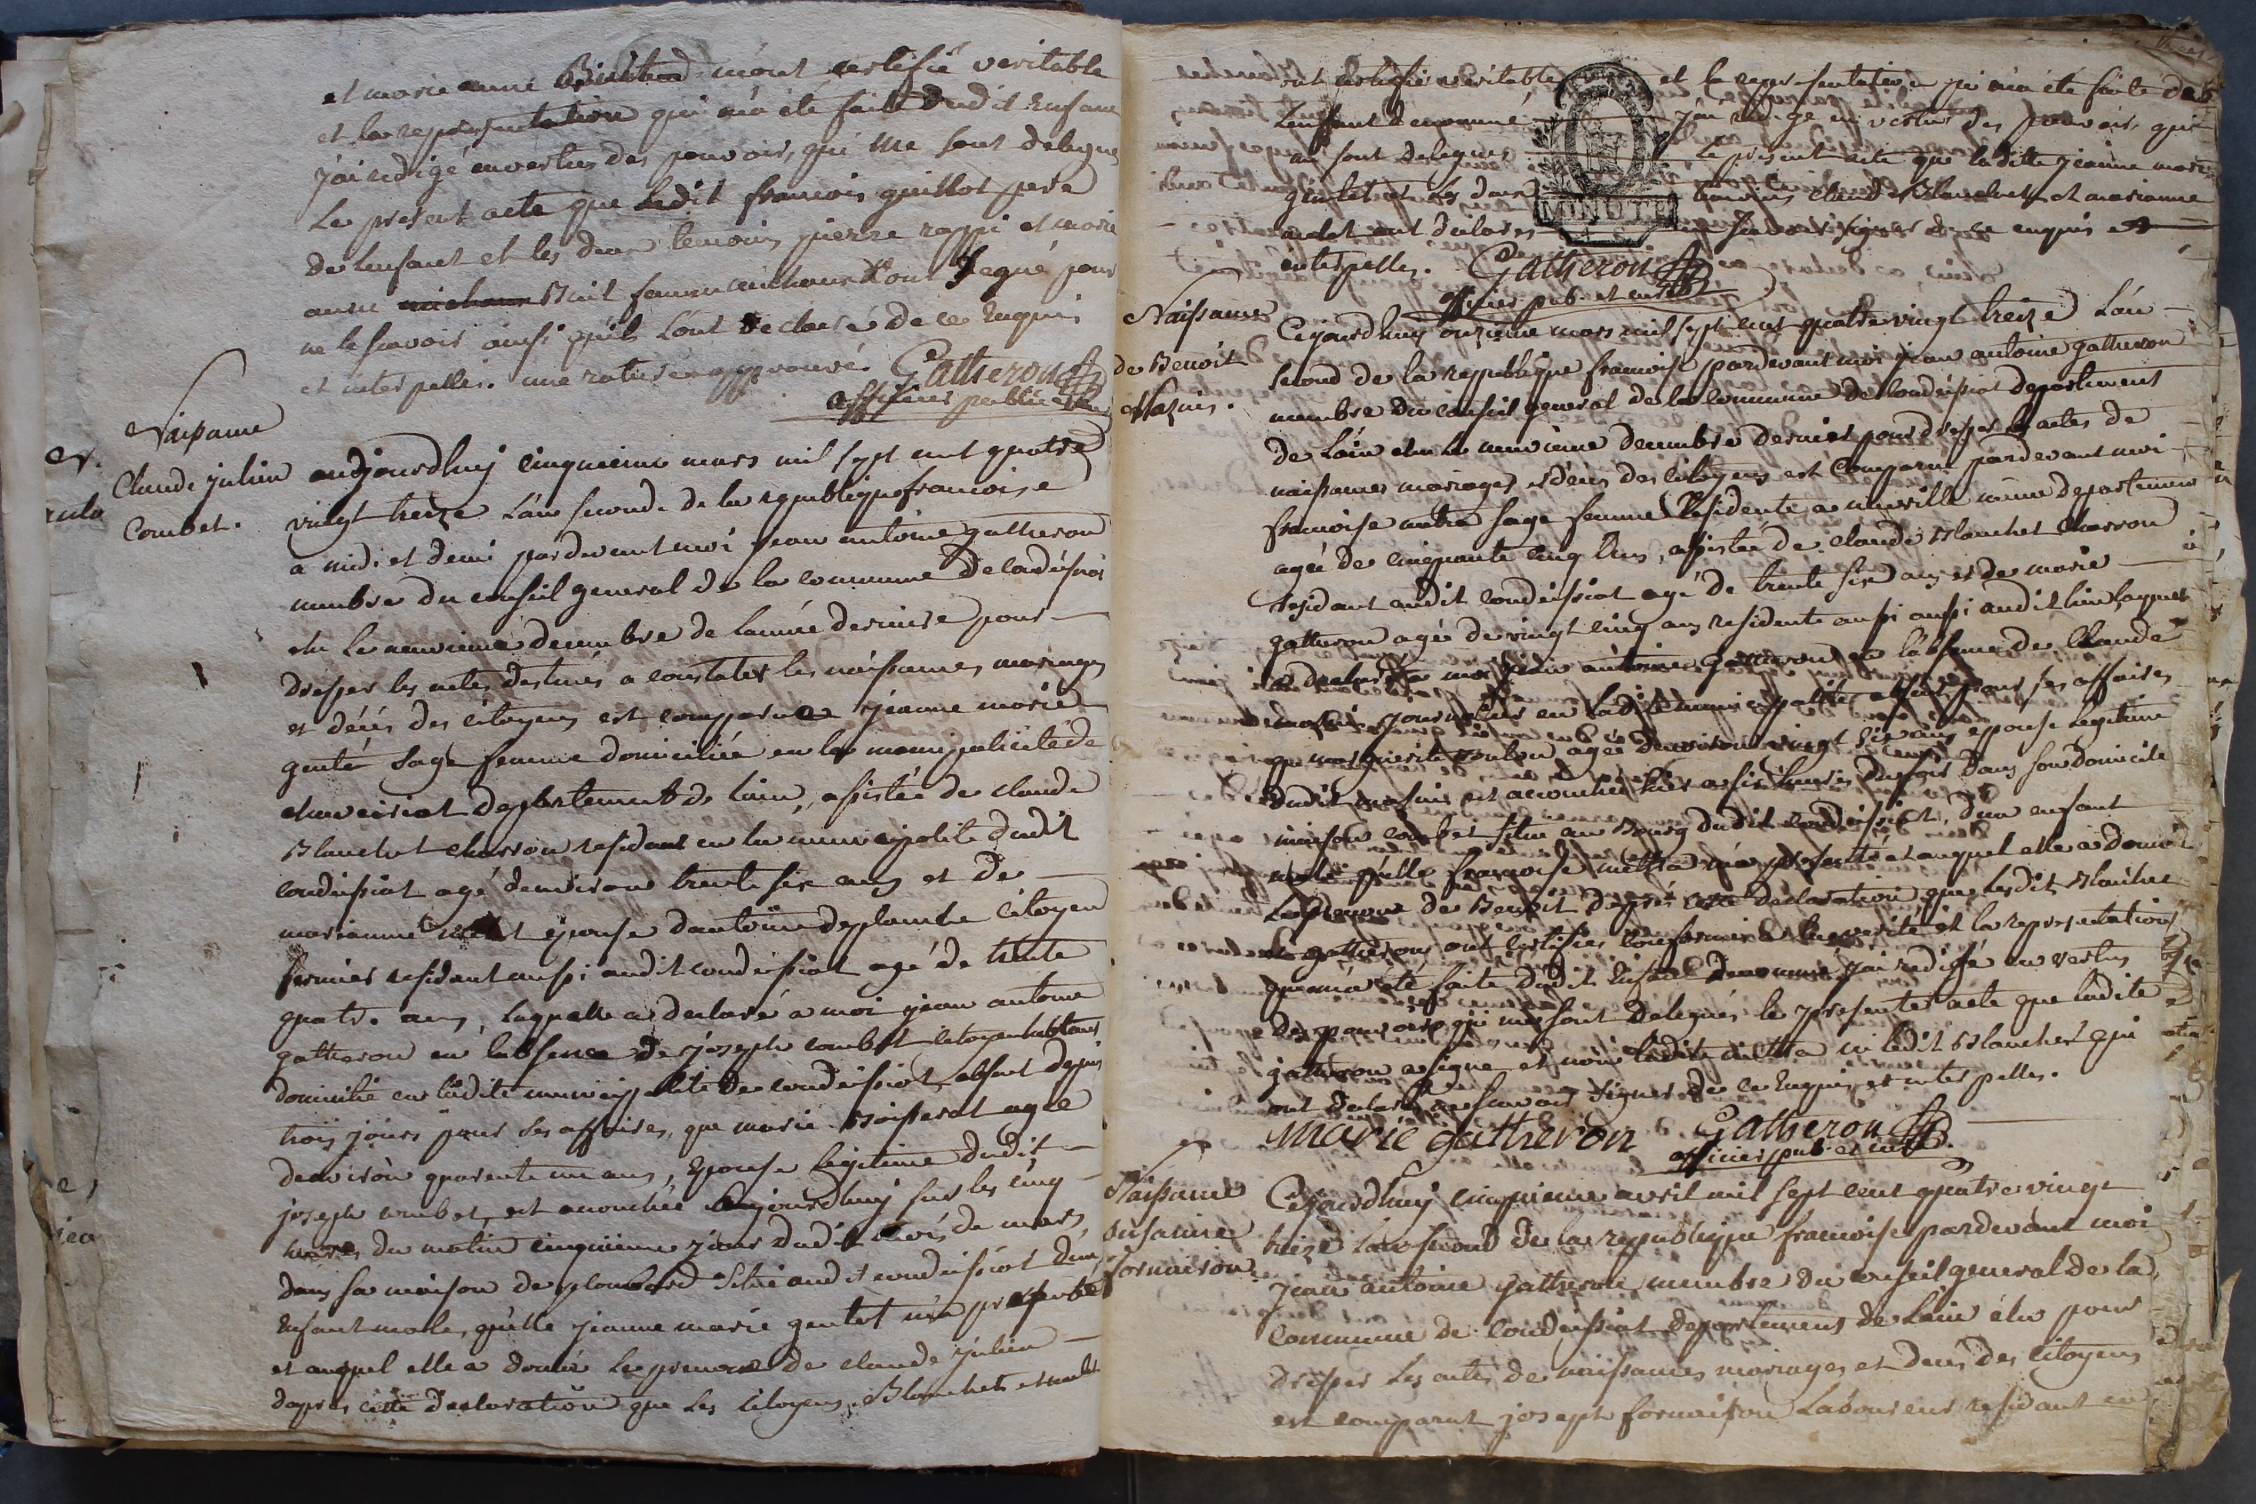 et marie anne m'ont certifié veritable
et la representation qui m'a ete faite dudit Enfant
j'ai redigé en vertus des pouvoirs, qui me sont delegues
Le present acte que Ledit francois guillot pere
de Lenfant et les deux temoins pierre et marie
anne femme n'ont signé pour
ne le scavoir ainsi qu'ils L'ont declaré de ce Enquis
et interpelles. une rature approuvé. Gatheron
officier public
Naissance
Claude julien
Combet.
audjourdhuy cinquieme mars mil sept cent quatre
vingt treize L'an second de la republique francoise
a midi et demi pardevant moi jean antoine gatheron
membre du conseil general de la commune de condeissiat
elu Le neuvieme decembre de Lannée derniere pour
dresser les actes destinés a constater les naissances, mariages
et décés des citoyens est comparue jeanne marie
gentet sage femme domiciliée en la municipalité de
chaveiriat departement de Lain, assistée de claude
Blanchet charron residant en la municipalité dudit
condeissiat agé denviron trente six ans et de
marianne épouse dantoine deplanche citoyen
fermier residant aussi audit condeissiat agé de trente
quatre ans, Laquelle a declaré a moi jean antoine
gatheron en l'absence de joseph combet citoyen
domicilié en ladite municipalité de condeissiat, absent depuis
trois jours pour ses affaires, que marie Boisserat agée
denviron quarente un ans, Epouse legitime dudit
joseph combet, est accouchée aujourdhuy sur les cinq
heures du matin cinquieme jour dudit mois de mars,
dans sa maison de situé audit condeissiat d'un
Enfant male, qu'elle jeanne marie gentet m'a presenté
et auquel elle a donné Le prenom de claude julien
dapres cette declaration que Les citoyens Blanchet et
ont certifié veritable et la representation qui m'a été faite de
Lenfant denommé j'ai redigé en vertus des pouvoirs qui
me sont delegues Le present acte que ladite jeanne marie
gentet et les deux temoins claude Blanchet et marianne
ont declarés ne scavoir signer de ce enquis et
interpelles. Gatheron
officier pub. et
MINUTE
Naissance
de Benoit
Mazuir.
Cejourdhuy onzieme mars mil sept cent quatre vingt treize L'an
second de la republique francoise pardevant moi jean antoine gatheron
membre du conseil general de la commune de condeissiat departement
de Lain elu Le neuvieme decembre dernier pour dresser les actes de
naissances mariages et décés des citoyens est Comparue pardevant moi
francoise sage femme Residente a neuville même departement
agée de cinquante cinq ans, assistée de claude Blanchet charron
residant audit condeissiat agé de trente six ans et de marie
gatheron agée de vingt cinq ans residente aussi audit lieu, laquelle
a declaré a moi jean antoine gatheron en l'absence de Claude
en ladite municipalité absent pour ses affaires
que marguerite agée denviron vingt six ans epouse legitime
dudit mazuir est accouchée hier a six heures du soir dans son domicile
maison combet situé au Bourg dudit condeissiat, d'un enfant
male qu'elle francoise m'a presenté et auquel elle a donné
Le prenom de Benoit d'aprés cette declaration que Lesdits Blanchet
et gatheron ont certifiés conforme a la verité et la representation
qui m'a été faite dudit Enfant denommé j'ai redigé en vertus
des pouvoirs qui me sont delegués le present acte que ladite
gatheron a signé et non ladite ni ledit Blanchet qui
ont declarés ne scavoir signer de ce Enquis et interpelles.
marie gatheron Gatheron
officier pub. et
Naissance
Susanne
formaison
Cejourdhuy cinquieme avril mil sept cent quatre vingt
treize L'an second de la republique francoise pardevant moi
jean antoine gatheron membre du conseil general de la
commune de condeissiat departement de Lain élu pour
dresser Les actes de naissances mariages et decés des citoyens
est comparut joseph formaison Laboureur residant en